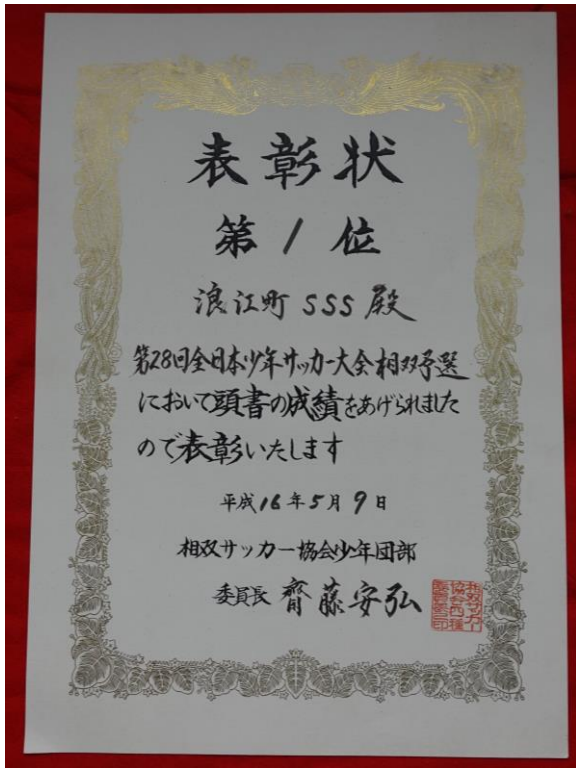 表彰状
第1位
浪江町 SSS 殿
第28回全日本少年サッカー大会相双予選
において頭書の成績をあげられました
ので表彰いたします
平成16年5月9日
相双サッカー協会少年団部
委員長 齋藤安弘